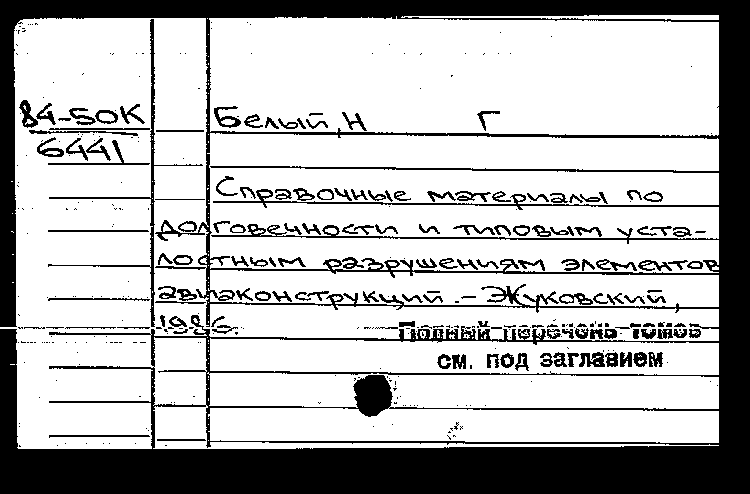 84-50К Белый, Н Г
6441
Справочные материалы по
долговечности и типовым уста-
лостным разрушениям элементов
авиаконструкций. - Жуковский,
1986.
Полный перечень томов
см. под заглавием